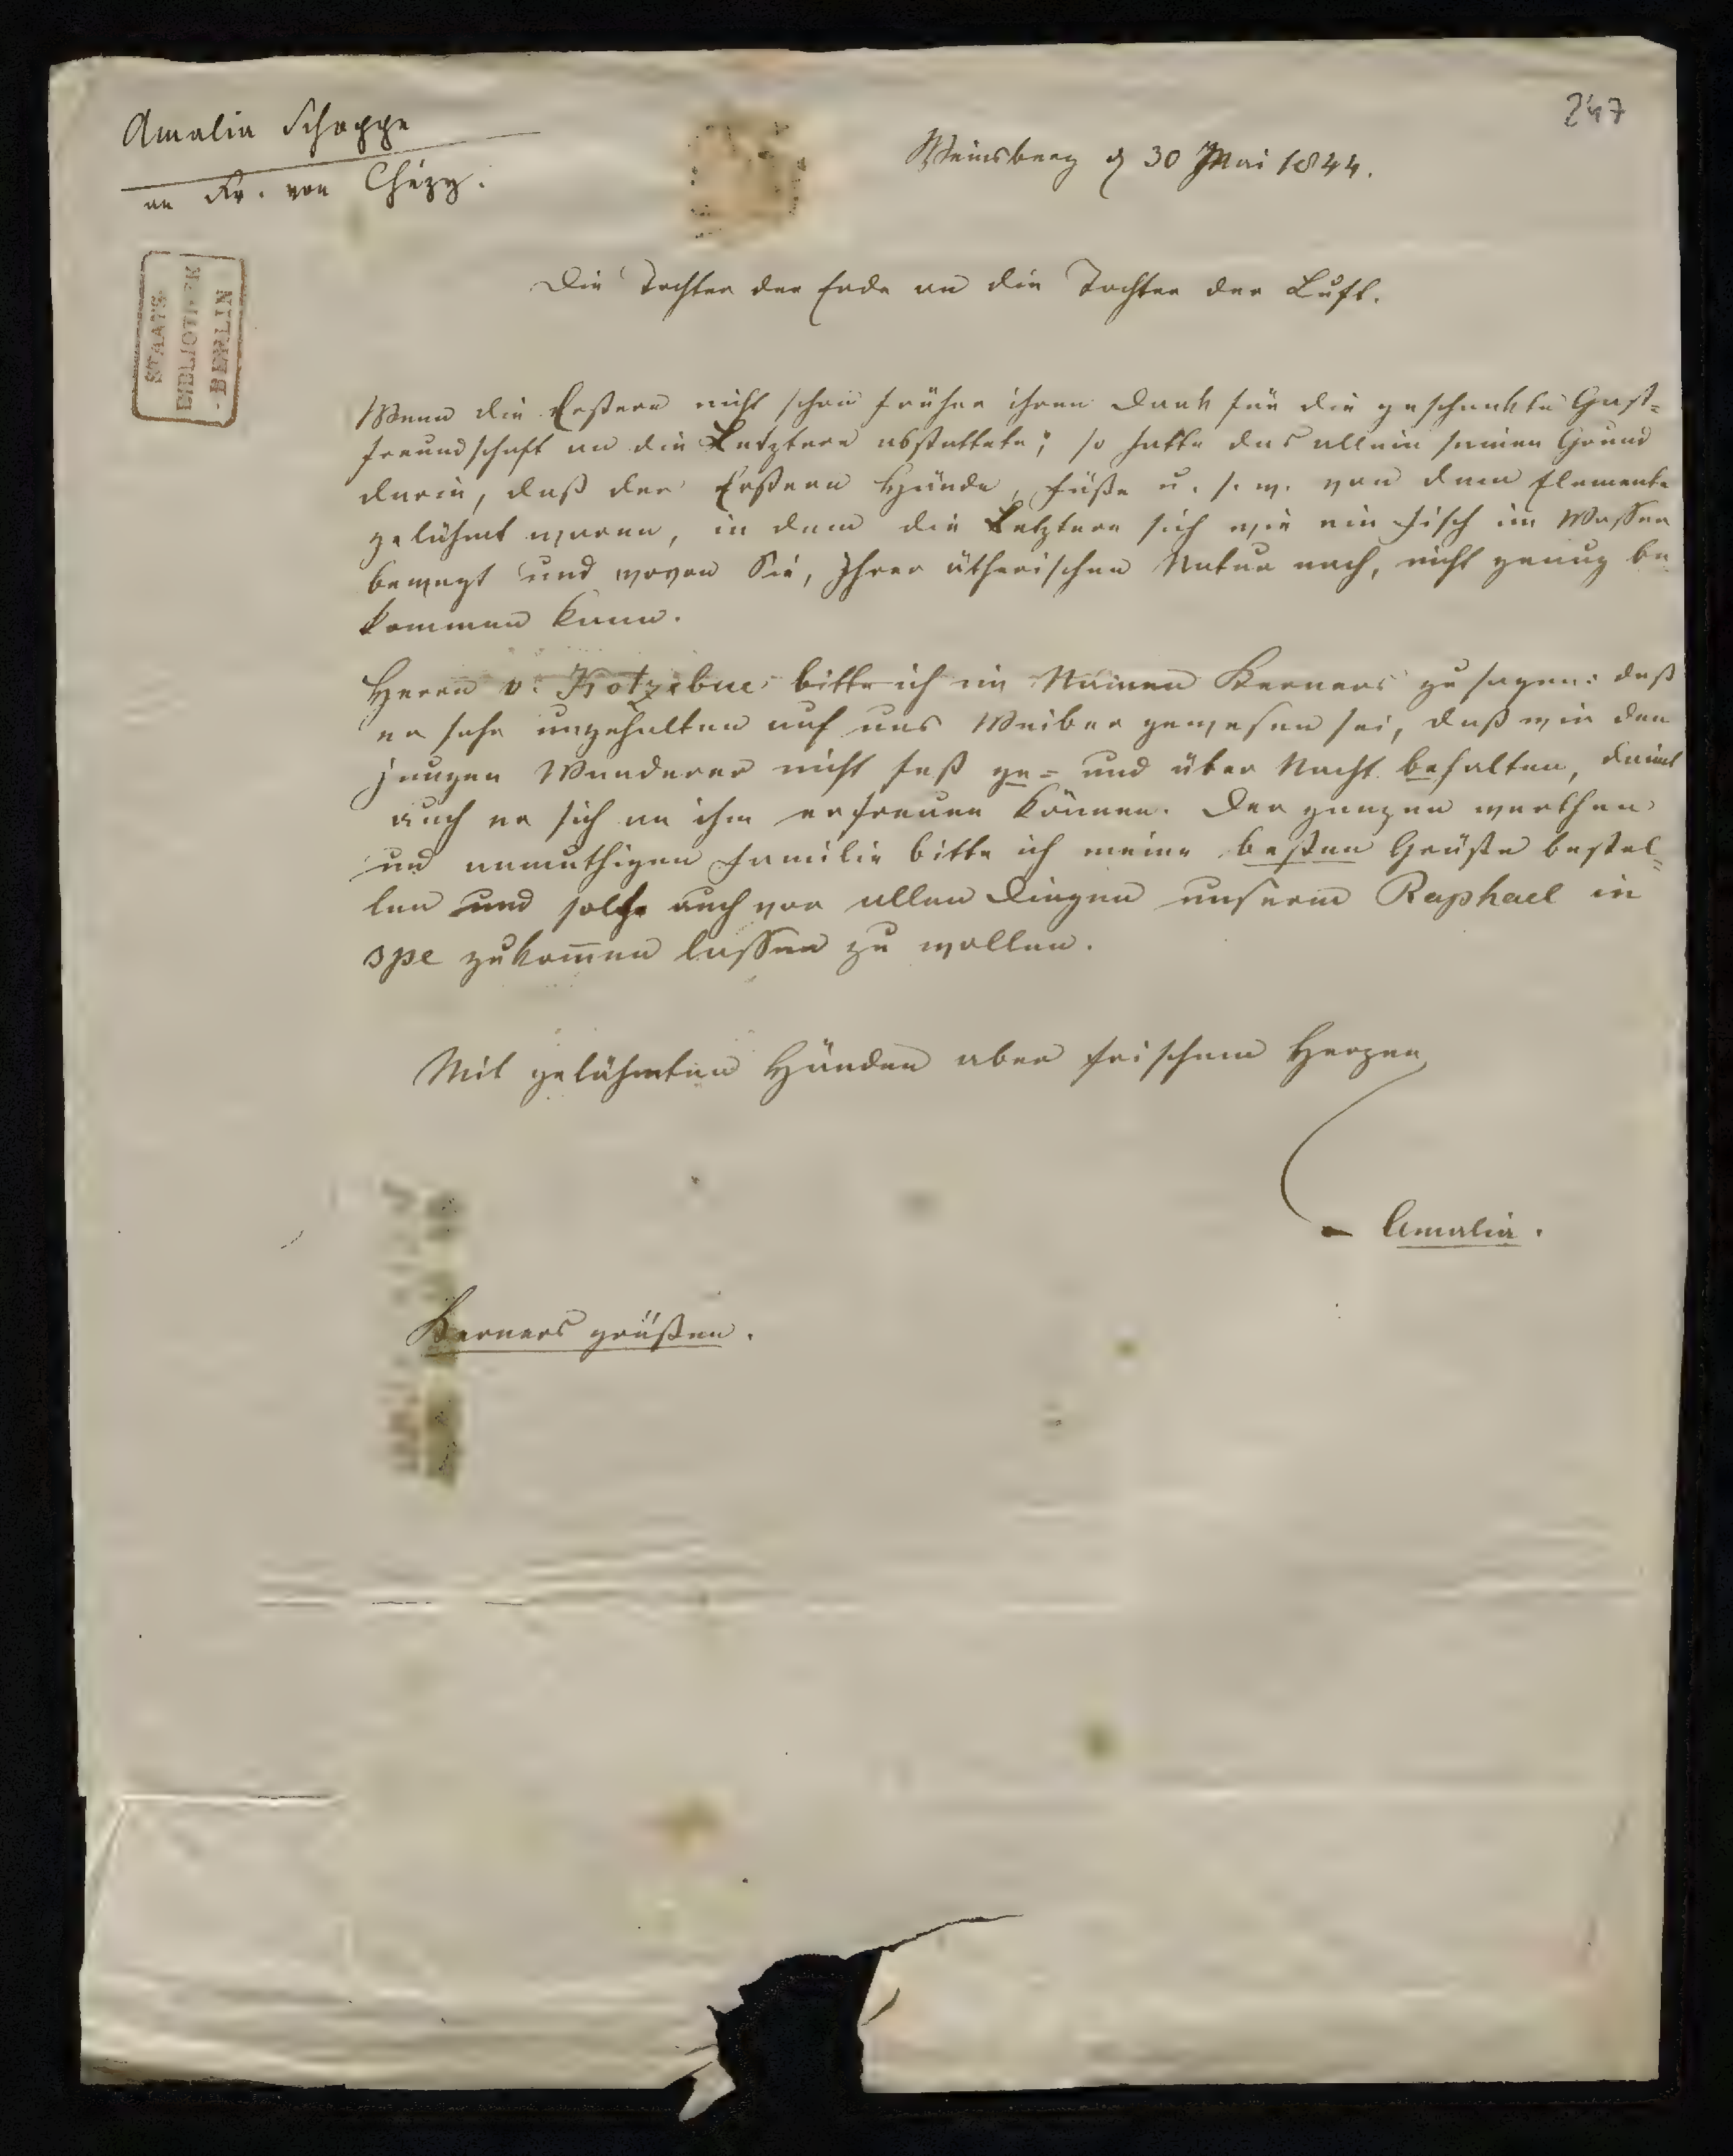 Amalia Schoppe
an Fr. von Chézy.
247
Weinsberg d 30 Mai 1844.
STAATS-
BIBLIOTHEK
BERLIN
Die Tochter der Erde an die Tochter der Luft.
Wenn die Erstere nicht schon früher ihren Dank für die geschenkte Gast=
freundschaft an die Letztere abstattete; so hatte das allein seinen Grund
darin, daß der Erstern Hände, Füße u. s. w. von dem Elemente
gelähmt waren, in dem die Letztere sich wie ein Fisch im Wasser
bewegt und wovon Sie, Ihrer ätherischen Natur nach, nicht genug be
kommen kann.
Herrn v. Kotzebue bitte ich im Namen Kerners zu sagen: daß
er sehr ungehalten auf uns Weiber gewesen sei, daß wir den
jungen Wanderer nicht fest ge= und über Nacht behalten, damit
auch er sich an ihm erfreuen können. Der ganzen werthen
und anmuthigen Familie bitte ich meine besten Grüße bestel=
len und solche auch vor allen Dingen unserm Raphael in
spe zukom̄en lassen zu wollen.
Mit gelähmten Händen aber frischem Herzen
Amalia.
Kerners grüßen.